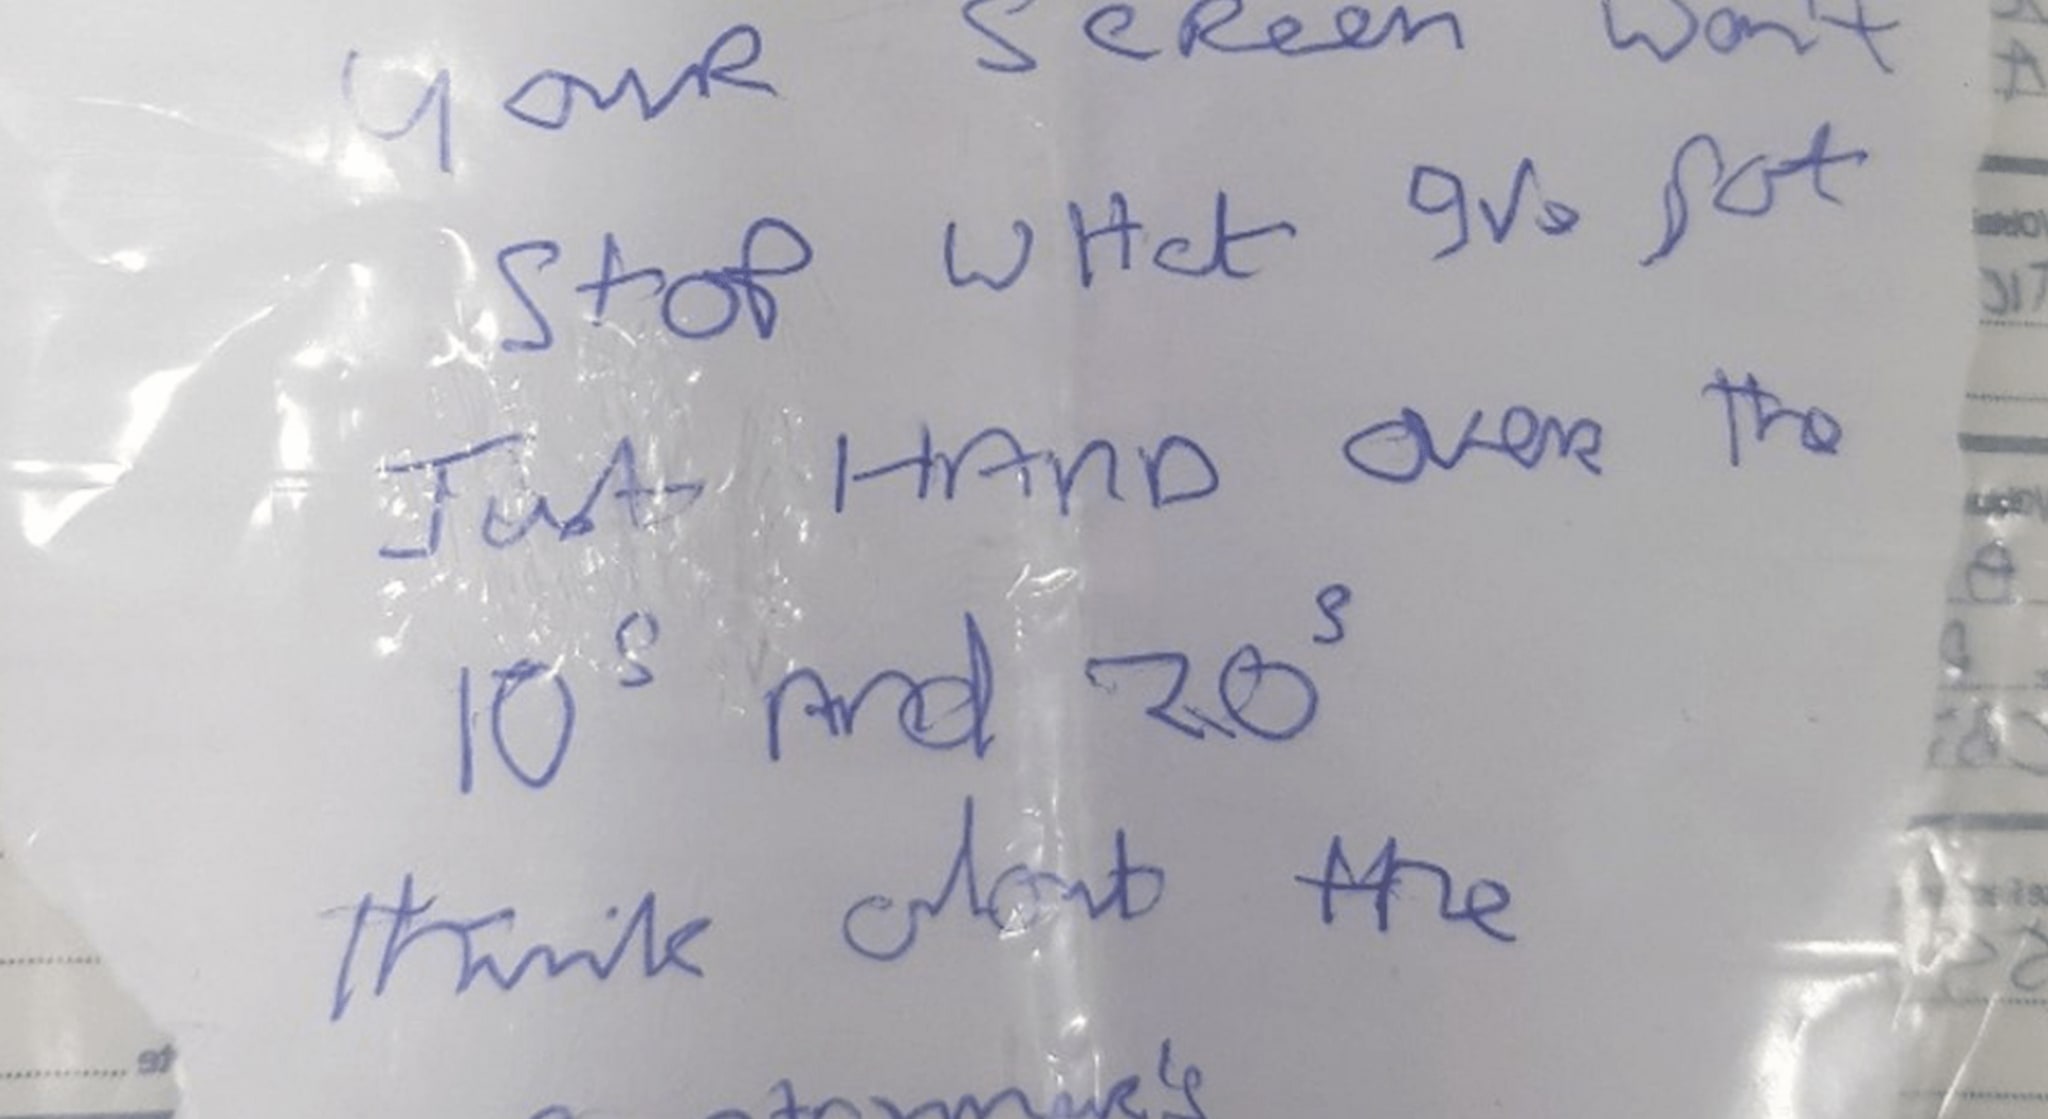 your screen won't
stop what gve got
Just HAND over the
10s and 20s
think about the
customer's